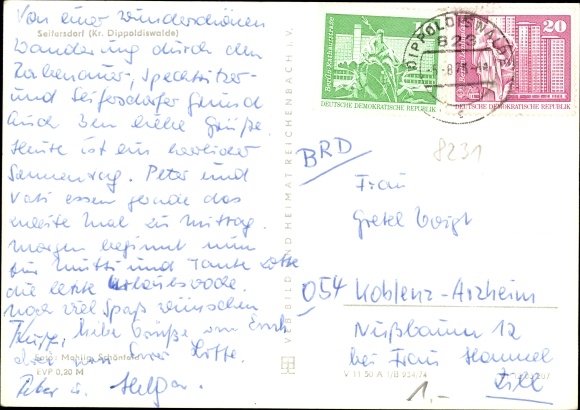 Seifersdorf (Kr. Dippoldiswalde)
Von einer wunderschönen
Wanderung durch den
Rabenauer, Spechtritzer-
und Seifersdorfer Grund
auch Dir liebe Grüße.
Heute ist ein herrlicher
Sonnentag. Peter und
Vati essen gerade das
zweite Mal zu Mittag.
Morgen beginnt nun
für Mutti und Tante Lotte
die letzte Urlaubswoche.
Noch viel Spaß wünschen
liebe Grüße von
Eurer Lotte.
Foto: Mathias Schönfelder
EVP 0,20 M
Peter u. Helga.
VEB BILD UND HEIMAT REICHENBACH I. V.
Berlin-Rathausstraße
10
DEUTSCHE DEMOKRATISCHE REPUBLIK
20
DEUTSCHE DEMOKRATISCHE REPUBLIK
DIPPOLDISWALDE
828
c
BRD
8231
Frau
Gretel Voigt
054 Koblenz-Arzheim
Nußbaum 12
bei Frau Hommel
V 11 50 A 1/B 934/74
1,-